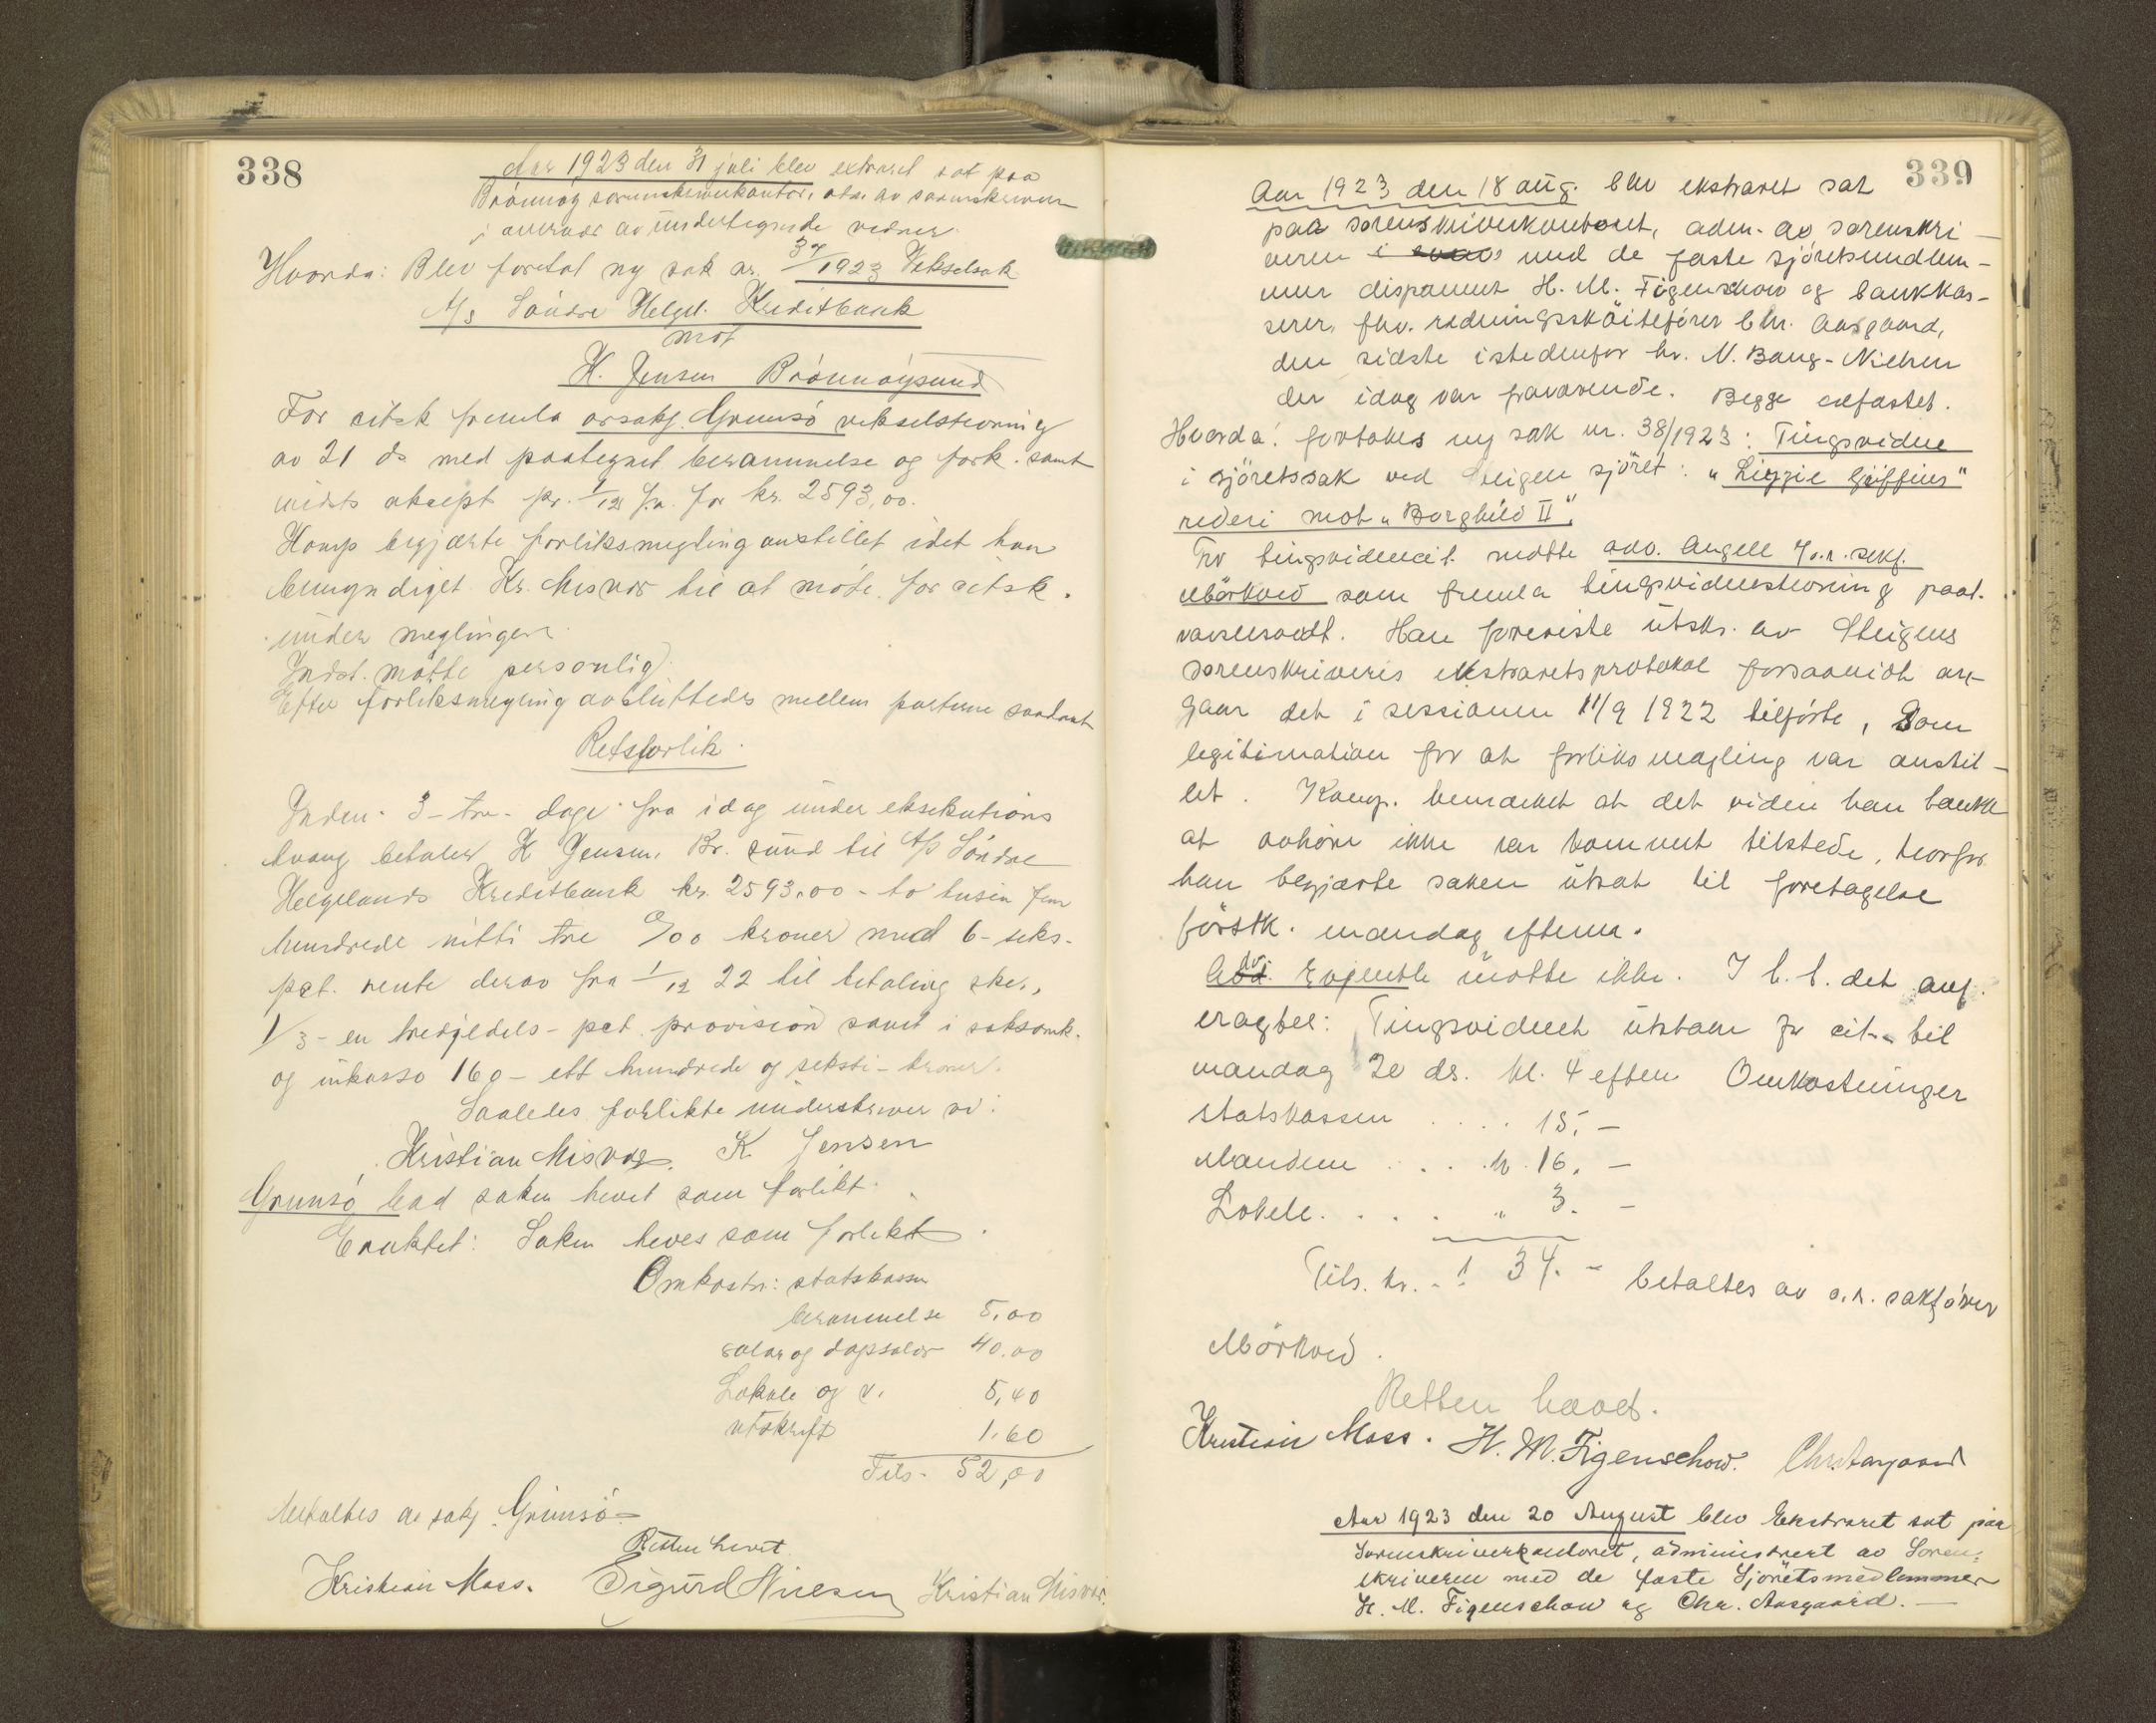 338
Aar 1923 den 31 juli blev extraret sat paa
Brönnöy sorenskriverkontor, adm. av sorenskriveren
i overvær av undertegnede vidner.
Hvorda: Blev foretat ny sak nr. 37/1923 Vekselsak
A/s Söndre Helgel. Kreditbank
mot
K. Jensen Brönnöysund
For citsk fremla orsakf. Grunsö vekselstevning
av 21 ds med paategnet berammelse og fork. samt
aksept pr. 1/12 f.a. for kr. 2593,00.
Komp begjærte forliksmegling anstillet idet han
bemyndiget Kr. Misvær til at möte for citsk.
under meglingen.
Indst. mötte personlig.
Efter forliksmegling avsluttedes mellem parterne saadant
Retsforlik.
Inden 3 - tre - dage fra idag under eksekutions
tvang betaler K Jensen, Br. sund til A/s Söndre
Helgelands Kreditbank kr. 2593.00 - to tusin fem
hundrede nitti tre 0/00 kroner med 6 - seks -
pct. rente derav fra 1/12 22 til betaling sker,
1/3 - en tredjedels - pct provision samt i saksomk.
og inkasso 160 - ett hundrede og seksti - kroner.
Saaledes forlikte underskriver vi:
Kristian Misvær. K Jensen
Grunsö bad saken hevet som forlikt.
Eraktet: Saken heves som forlikt.
Omkostn: statskassen
berammelse 5,00
salær og dagssalær 40.00
Lokale og v. 5,40
utskrift 1.60
Tils. 52,00
betaltes av sakf. Grunsö
Retten hevet.
Kristian Moss. Sigurd Nilsen Kristian Misvær.
339
Aar 1923 den 18 aug. blev ekstraret sat
paa sorenskriverkontoret, adm. av sorenskri-
veren i med de faste sjöretsmedlem-
mer disponent H. M. Figenschow og bankkas-
serer, fhv. redningssköitefører Chr. Aasgaard,
den sidste istedenfor hr. N. Bang-Nielsen
der idag var fraværende. Begge edfæstet.
Hvorda: foretokes ny sak nr. 38/1923: Tingsvidne
i sjöretssak ved Steigen sjöret: "Lizzie Griffins"
rederi mot "Borghild II".
For tingsvidnecit. mötte adv. Angell v. o.r. sakf.
Mörkved som fremla tingsvidnestevning paat.
varselsvedt. Han foreviste utskr. av Steigens
sorenskriveris ekstraretsprotokol forsaavidt an-
gaar det i sessionen 11/9 1922 tilförte, Som
legitimation for at forliksmægling var anstil-
let. Komp. bemerket at det vidne han tænkte
at avhöre ikke var kommet tilstede, hvorfor
han begjærte saken utsat til foretagelse
förstk. mandag efterm.
Adv. Evjenth mötte ikke. I h. t. det anf.
eragtet: Tingsvidnet utstaar for cit. til
mandag 20 ds. kl. 4 efterm Omkostninger
statskassen .... 15. -
Mændene .... kr. 16. -
Lokale .... " 3. -
Tils. kr. 34. - betaltes av o.r. sakförer
Mörkved.
Retten hævet.
Kristian Moss. H. M. Figenschow. Chr. Aasgaard
Aar 1923 den 20 August blev Ekstraret sat paa
Sorenskriverkontoret, administrert av Soren-
skriveren med de faste Sjöretsmedlemmer
H. M. Figenschow og Chr. Aasgaard. -